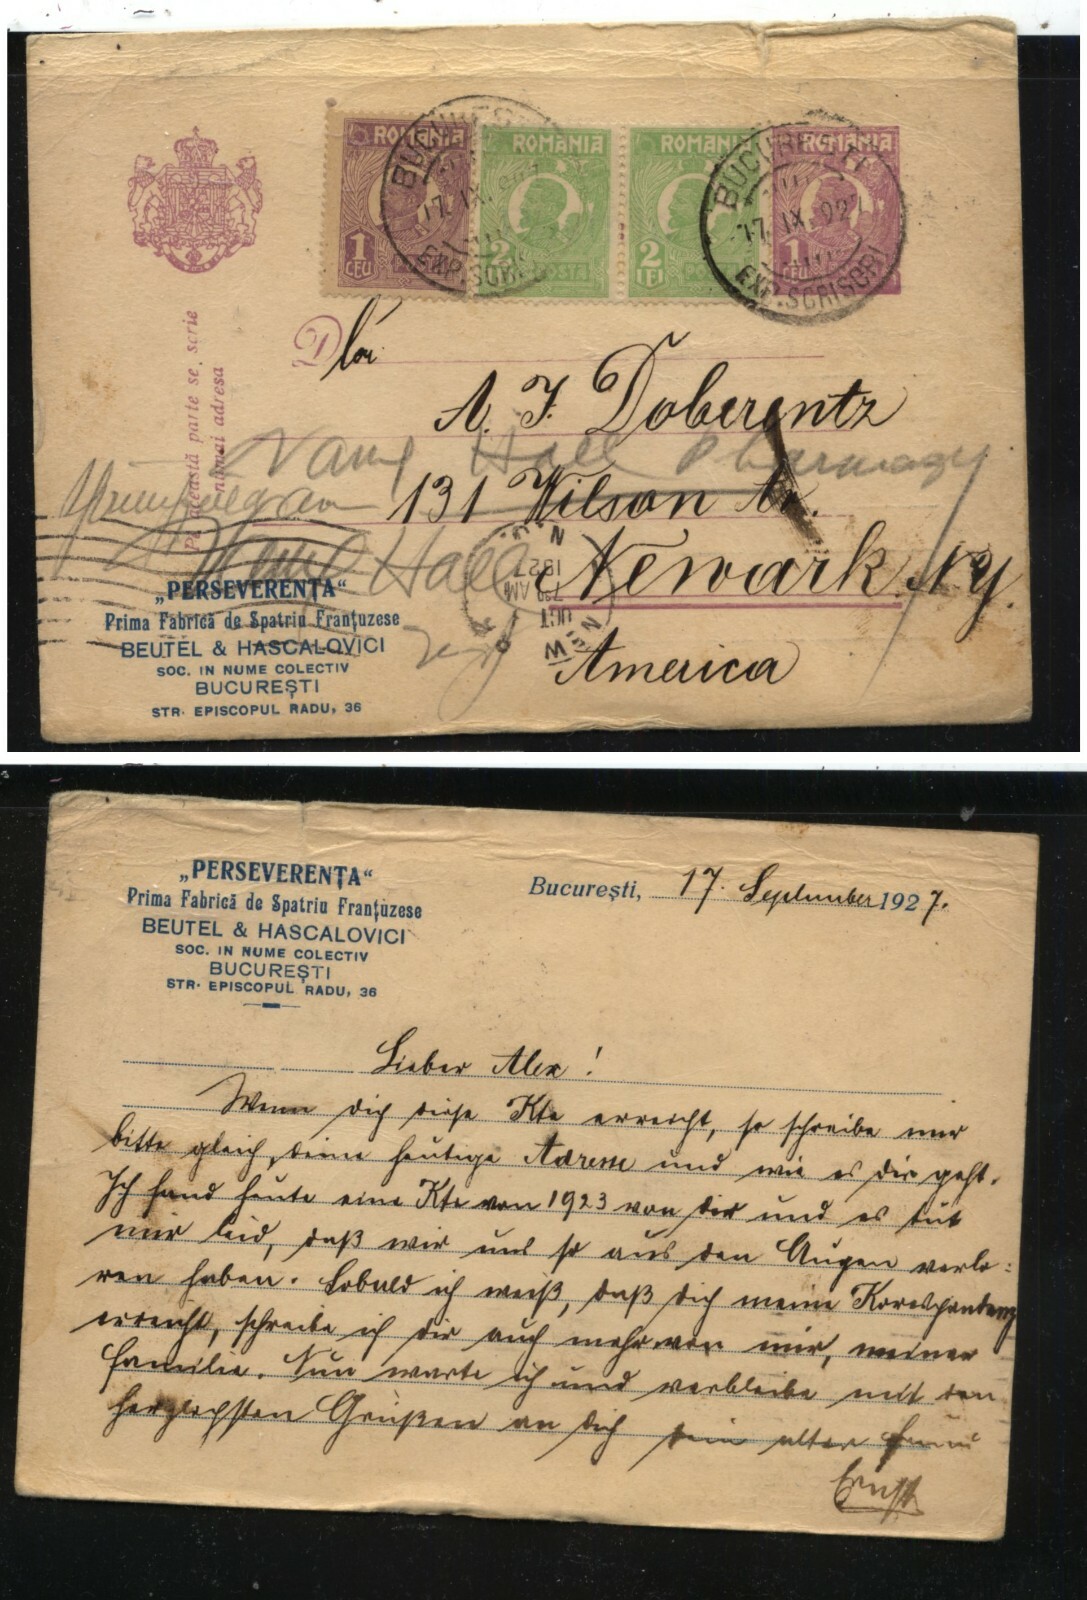 ROMÂNIA
1 LEU
ROMÂNIA
2 POSTA
ROMÂNIA
2 LEI POSTA
ROMÂNIA
1 LEU
BUCUREȘTI
17. IX. 927
EXP. SCRISORI
BUCUREȘTI
17. IX. 927
EXP. SCRISORI
Pe această parte se scrie
numai adresa
Dlui
A. F. Doberentz
Hall Pharmacy
131 Wilson Av.
Hall
Newark Ny.
America
NEW
OCT
7 30 AM
1927
N.J.
„PERSEVERENȚA“
Prima Fabrică de Spatriu Franțuzese
BEUTEL & HASCALOVICI
SOC. IN NUME COLECTIV
BUCUREȘTI
STR. EPISCOPUL RADU, 36
„PERSEVERENȚA“
Prima Fabrică de Spatriu Franțuzese
BEUTEL & HASCALOVICI
SOC. IN NUME COLECTIV
BUCUREȘTI
STR. EPISCOPUL RADU, 36
București, 17. September 1927.
Lieber Alex!
Wenn dich diese Kte erreicht, so schreibe mir
bitte gleich, deine heutige Adresse und wie es dir geht.
Ich fand heute eine Kte von 1923 von dir und es tut
mir leid, daß wir uns so aus den Augen verlo:
ren haben. Sobald ich weiß, daß dich meine Korespondenz
erreicht, schreibe ich dir auch mehr von mir, meiner
Familie. Nun warte ich und verbleibe mit den
herzlichsten Grüßen an dich dein alter
Ernst